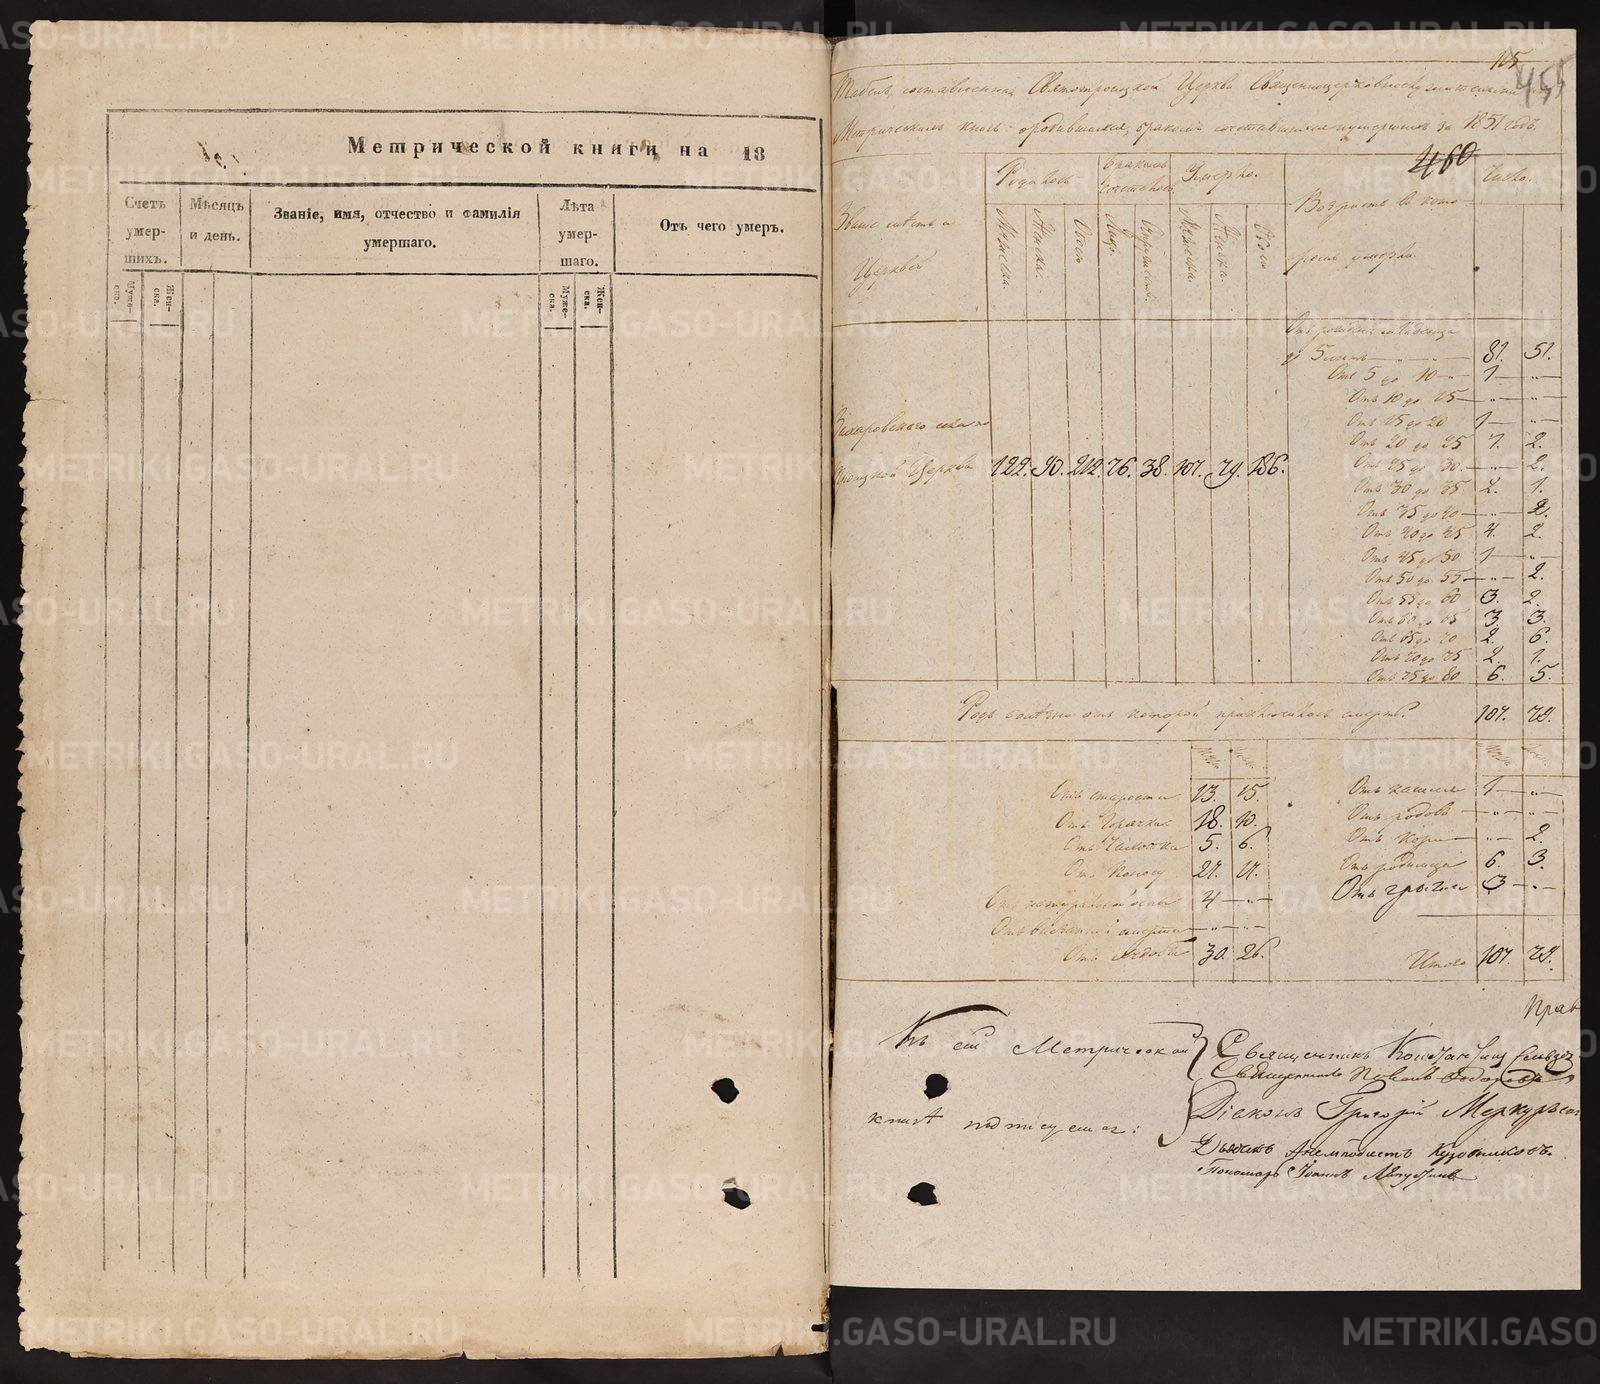 Метрической книги на 18
Счетъ умер-
шихъ.
Мѣсяцъ
и день.
Званіе, имя, отчество и фамилія
умершаго.
Лѣта
умер-
шаго.
Отъ чего умеръ.
Муже-
ска.
Жен-
ска.
Муже-
ска.
Жен-
ска.
115
455
Табель, составленная Святотроицкой Церкви Священноцерковнослужителями
Метрическимъ книгъ о родившихся, бракомъ сочетавшихся и умершихъ за 1851 годъ.
460
Званіе мѣстъ и
Церквей
Родилось
Бракомъ
Умерло.
Возрастъ въ кото-
ромъ умерли
Число.
Мужеска.
Женска.
Обоего
Мужеска.
Женска.
Обоего
Троицкой Церкви 122. 90. 212. 26. 38. 107. 79. 186.
до 5 лѣтъ 81. 51.
Отъ 5 до 10 1 "
Отъ 10 до 15 " "
Отъ 15 до 20 1 "
Отъ 20 до 25 1. 2.
Отъ 25 до 30 " 2.
Отъ 30 до 35 2. 1.
Отъ 35 до 40 " 2.
Отъ 40 до 45 4. 2.
Отъ 45 до 50 1 "
Отъ 50 до 55 " 2.
Отъ 55 до 60 3. 2.
Отъ 60 до 65 3. 3.
Отъ 65 до 70 2. 6.
Отъ 70 до 75 2. 1.
Отъ 75 до 80 6. 5.
Родъ болѣзни отъ которой приключилась смерть. 107. 79.
Отъ старости 13. 15.
Отъ Горячки 18. 10.
Отъ Чахотки 5. 6.
Отъ Поносу 27. 17.
Отъ натуральной оспы 4 "
30. 26.
Отъ кашля 1 "
Отъ родовъ " "
Отъ Кори " 2.
Отъ родимца 6. 3.
Отъ грыжи 3 "
Итого 107. 79.
Прав
Къ сей Метрической
книгѣ подписуемся:
Священникъ Константинъ
Священникъ Павелъ
Діаконъ Григорій Меркурьевъ
Дьячекъ Анемподистъ
Пономарь Іоаннъ
METRIKI.GASO-URAL.RU